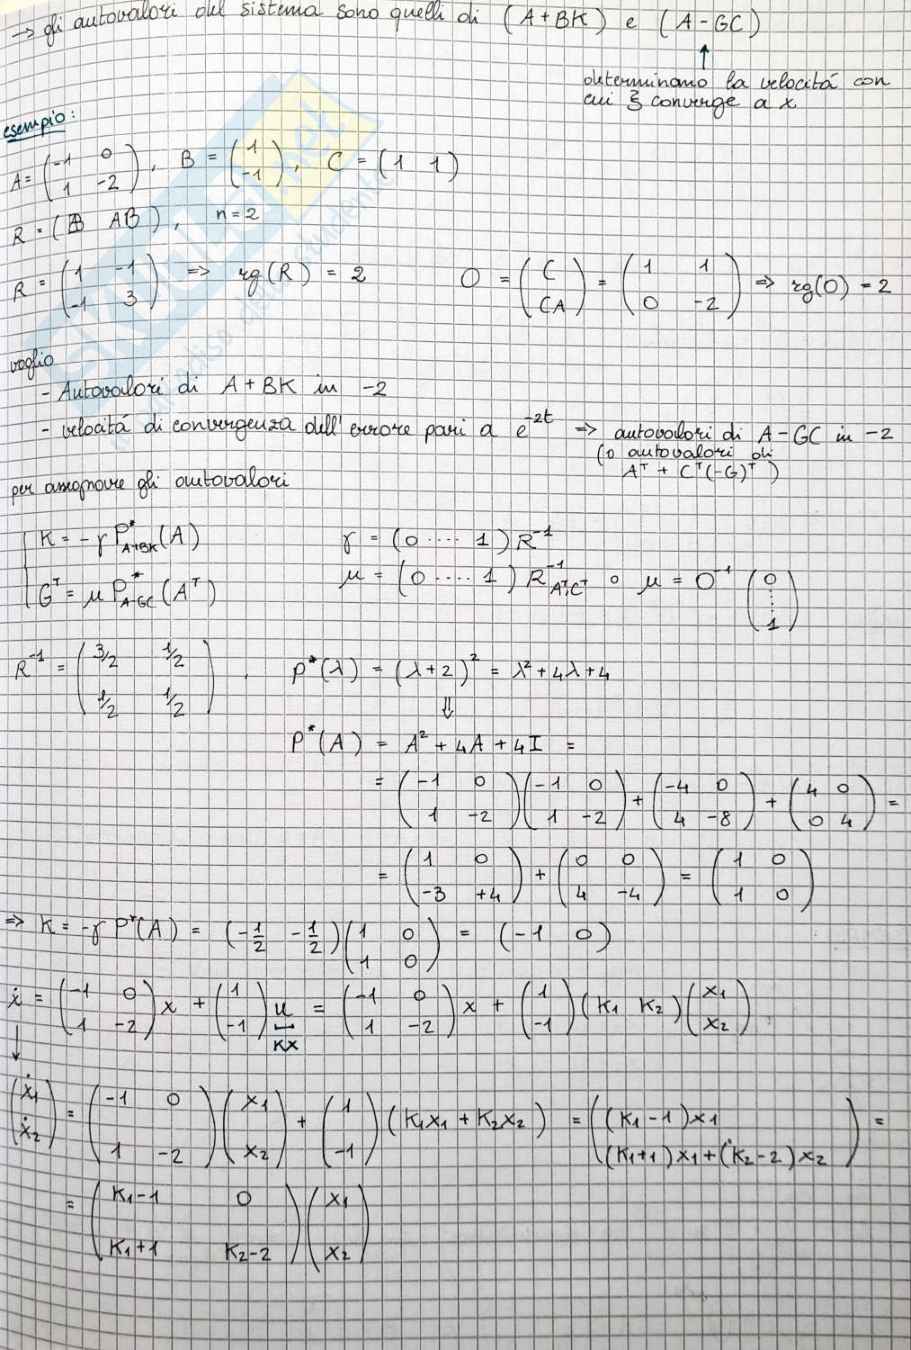 → gli autovalori del sistema sono quelli di (A+BK) e (A-GC)
↑
determinano la velocitá con
cui ξ converge a x
esempio:
A = (-1 0; 1 -2), B = (1; -1), C = (1 1)
R = (B AB), n=2
R = (1 -1; -1 3) => rg(R) = 2 O = (C; CA) = (1 1; 0 -2) => rg(O) = 2
voglio
- Autovalori di A+BK in -2
- velocitá di convergenza dell'errore pari a e^-2t => autovalori di A-GC in -2
(o autovalori di
A^T + C^T(-G)^T)
per assegnare gli autovalori
K = -γ P*_A+BK (A) γ = (0 .... 1) R^-1
G^T = μ P*_A-GC (A^T) μ = (0 .... 1) R^-1_A^T,C^T o μ = O^-1 (0; ⋮; 1)
R^-1 = (3/2 1/2; 1/2 1/2), P*(λ) = (λ+2)^2 = λ^2+4λ+4
⇓
P*(A) = A^2 + 4A + 4I =
= (-1 0; 1 -2)(-1 0; 1 -2) + (-4 0; 4 -8) + (4 0; 0 4) =
= (1 0; -3 +4) + (0 0; 4 -4) = (1 0; 1 0)
=> K = -γ P*(A) = (-1/2 -1/2)(1 0; 1 0) = (-1 0)
ẋ = (-1 0; 1 -2) x + (1; -1) u = (-1 0; 1 -2) x + (1; -1)(K1 K2)(x1; x2)
Kx
↓
(ẋ1; ẋ2) = (-1 0; 1 -2)(x1; x2) + (1; -1)(K1x1 + K2x2) = ((K1-1)x1; (K1+1)x1+(K2-2)x2) =
= (K1-1 0; K1+1 K2-2)(x1; x2)